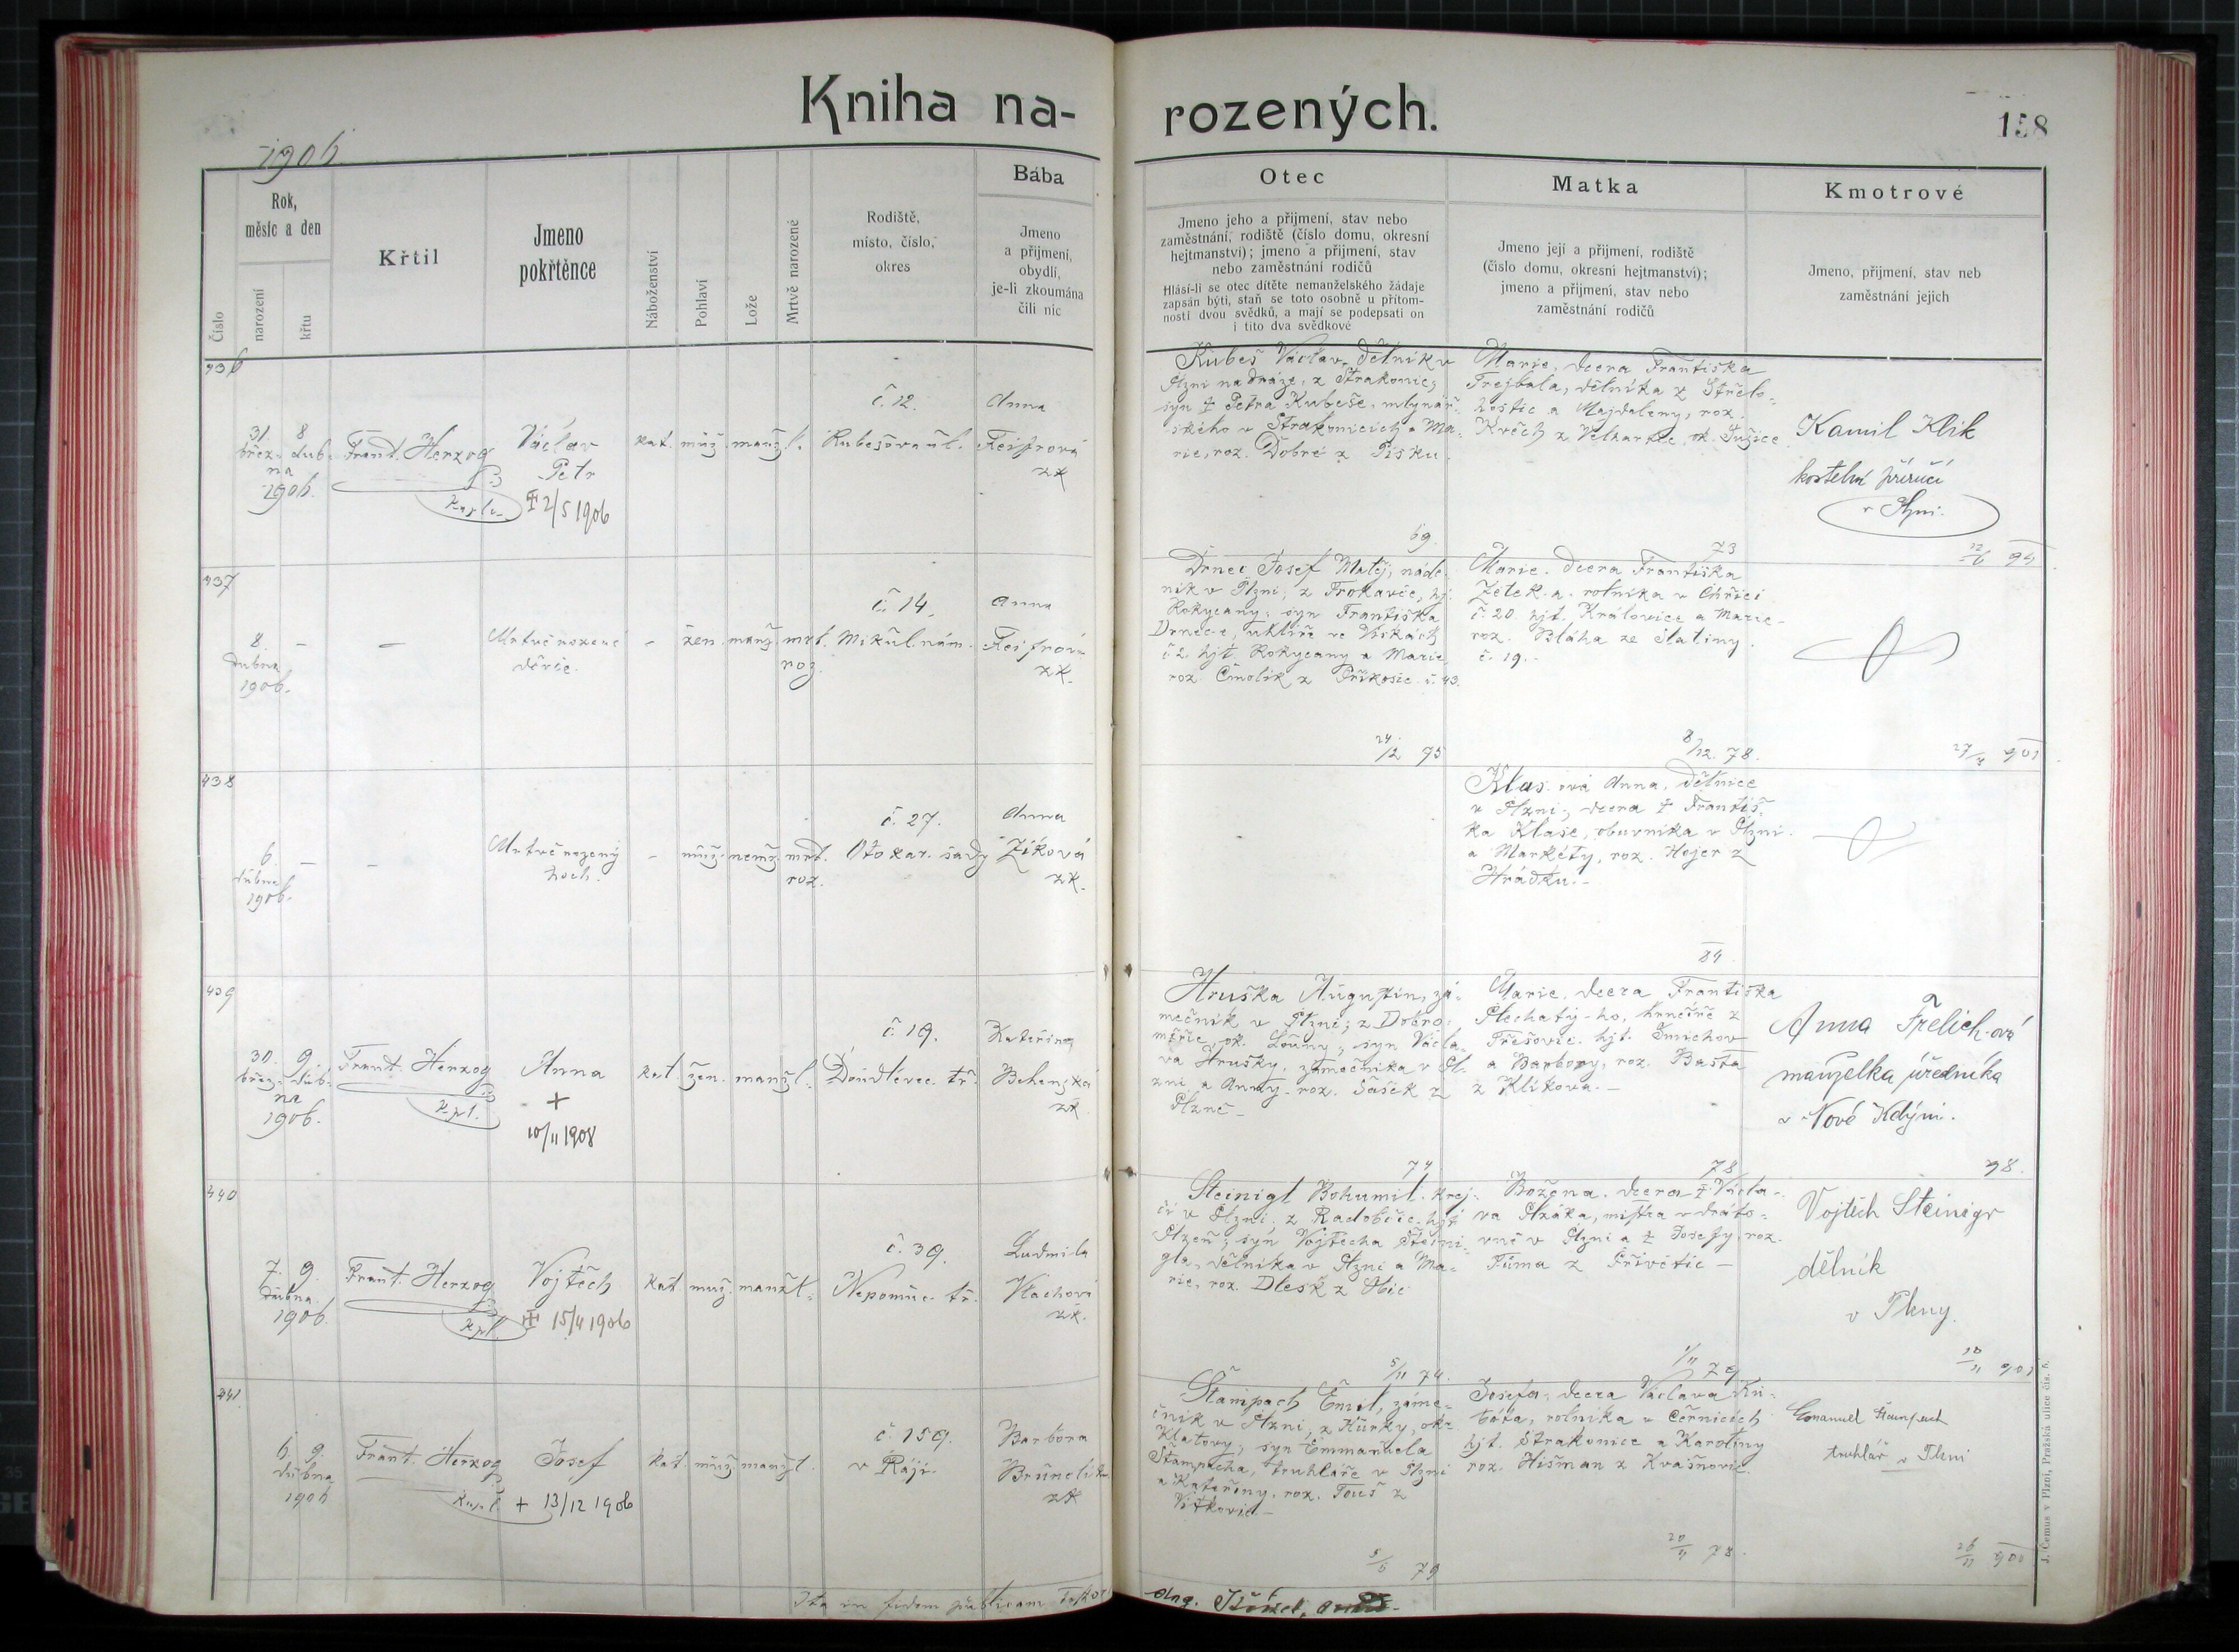 Kniha na-
rozených.
158
1906
Číslo
Rok,
měsíc a den
narození
křtu
Křtil
Jmeno
pokřtěnce
Náboženství
Pohlaví
Lože
Mrtvě narozené
Rodiště,
místo, číslo,
okres
Bába
Jmeno
a přijmení,
obydlí,
je-li zkoumána
čili nic
Otec
Jmeno jeho a přijmení, stav nebo
zaměstnání, rodiště (číslo domu, okresní
hejtmanství); jmeno a přijmení, stav
nebo zaměstnání rodičů
Hlásí-li se otec dítěte nemanželského žádaje
zapsán býti, staň se toto osobně u přítom-
nosti dvou svědků, a mají se podepsati on
i tito dva svědkové
Matka
Jmeno její a přijmení, rodiště
(číslo domu, okresní hejtmanství);
jmeno a přijmení, stav nebo
zaměstnání rodičů
Kmotrové
Jmeno, přijmení, stav neb
zaměstnání jejich
436
31. 8
břez. dub-
na
1906.
Frant. Herzog
kapl.
Václav
Petr
2/5 1906
kat. muž. manžl.
č. 12.
Kubešova ul.
Anna
Feifrová
zk
Kubeš Václav, dělník v
Plzni na dráze, z Strakonic;
syn † Petra Kubeše, mlynář-
ského v Strakonicích a Ma-
rie, roz. Dobré z Písku.
69.
Marie, dcera Františka
Trejbala, dělníka z Střelo-
hoštic a Majdaleny, roz.
Květ z Velhartic, ok. Sušice
73
Kamil Klik
kostelní příručí
v Plzni.
437
8.
dubna
1906.
Mrtvě rozené
děvče.
žen. manž. mrt.
roz.
č. 14.
Mikul. nám.
Anna
Feifrová
zk.
Drnec Josef Matěj, náde-
ník v Plzni; z Trokavce, hj.
Rokycany; syn Františka
Drnec-e, uhlíře ve Vískách
č. 2. hjt. Rokycany a Marie
roz. Čmolík z Příkosic č. 43.
24/2 75
Marie, dcera Františka
Zítek-a, rolníka v Chříči
č. 20. hjt. Kralovice a Marie
roz. Bláha ze Slatiny
č. 19.
8/12. 78.
438
6.
dubna
1906.
Mrtvě rozený
hoch.
muž. nemž. mrt.
roz.
č. 27.
Otokar. sady
Anna
Zíková
zk.
Klas-ová Anna, dělnice
v Plzni; dcera † Františ-
ka Klase, obuvníka v Plzni
a Markéty, roz. Hojer z
Hrádku.
84
439
30. 9.
břez. dub-
na
1906.
Frant. Herzog
kpl.
Anna
+
10/11 1908
kat. žen. manžl.
č. 19.
Doudlevec. tř.
Kateřina
Behenská
zk
Hruška Augustin, zá-
mečník v Plzni; z Dobro-
měřic, ok. Louny; syn Václa-
va Hrušky, zámečníka v Pl-
zni, a Anny, roz. Sašek z
Plzně
74
Marie, dcera Františka
Plechatý-ho, hrnčíře z
Třešovic, hjt. Smíchov
a Barbory, roz. Bašta
z Klikova.
78
Anna Frelich-ová
manželka úředníka
v Nové Kdýni.
98.
440
7. 9.
dubna
1906.
Frant. Herzog
kpl.
Vojtěch
15/4 1906
kat. muž. manžl.
č. 39.
Nepomuc. tř.
Ludmila
Vlachová
zk.
Steinigl Bohumil, krej-
čí v Plzni, z Radobčic, hjt
Plzeň; syn Vojtěcha Steini-
gla, dělníka v Plzni a Ma-
rie, roz. Dlesk z
5/11 74.
Božena, dcera † Václa-
va Plzáka, mistra v dráto-
vně v Plzni a † Josefy, roz.
Tůma z Přívětic
1/11 79
Vojtěch Steinigr
dělník
v Plzny.
441
6. 9.
dubna
1906
Frant. Herzog
kapl.
Josef
+ 13/12 1906
kat. muž. manžl.
č. 159.
v Ráji.
Barbora
zk
Štampach Emil, záme-
čník v Plzni, z Kůrky, okr.
Klatovy; syn Emmanuela
Štampacha, truhláře v Plzni
a Kateřiny, roz. Touš z
Vítkovic
5/6 79
Josefa, dcera Václava Ku-
báta, rolníka v Černicích
hjt. Strakonice a Karoliny
roz. Hišman z Kvášňovic.
20/11 78.
Emanuel Štampach
truhlář v Plzni
Ita in fidem publicam testor
J. Čemus v Plzni, Pražská ulice čís. 5.